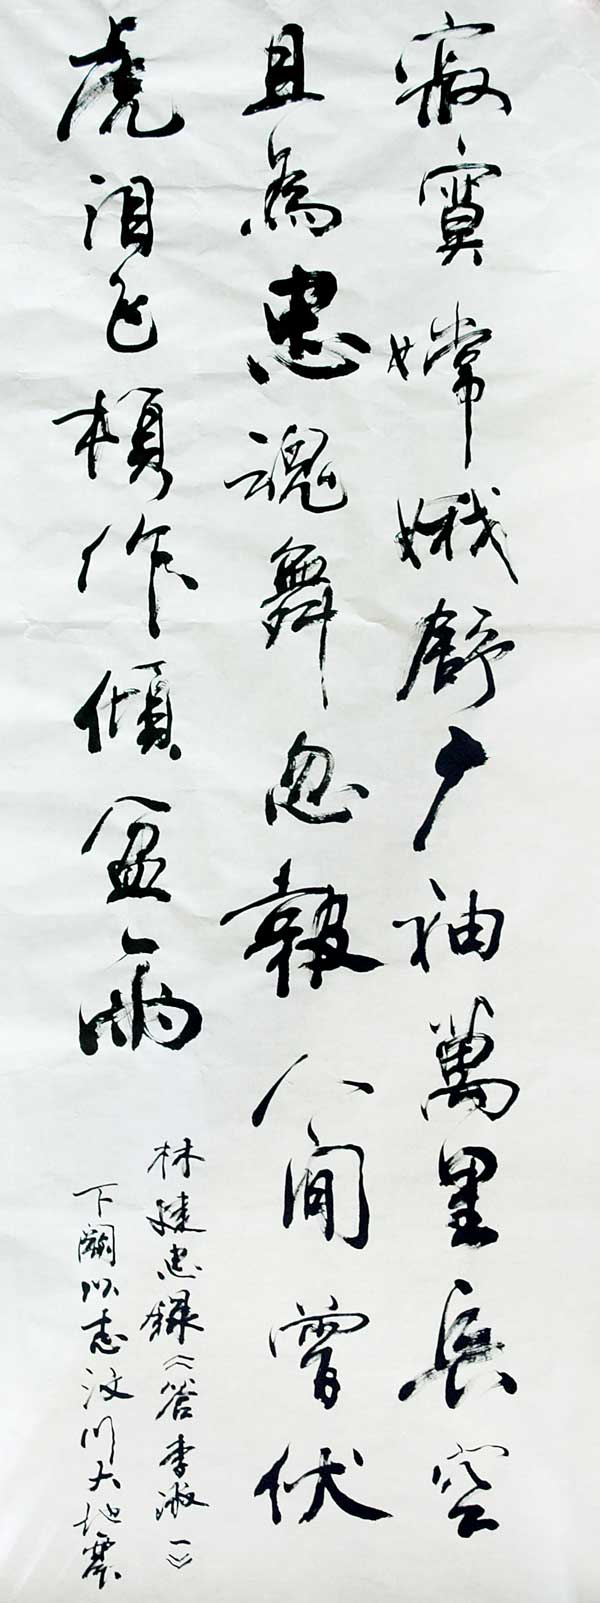 寂寞嫦娥舒广袖萬里長空
且為忠魂舞忽報人間曾伏
虎泪飞頓作傾盆雨
林建忠録《答李淑一》
下闋以志汶川大地震